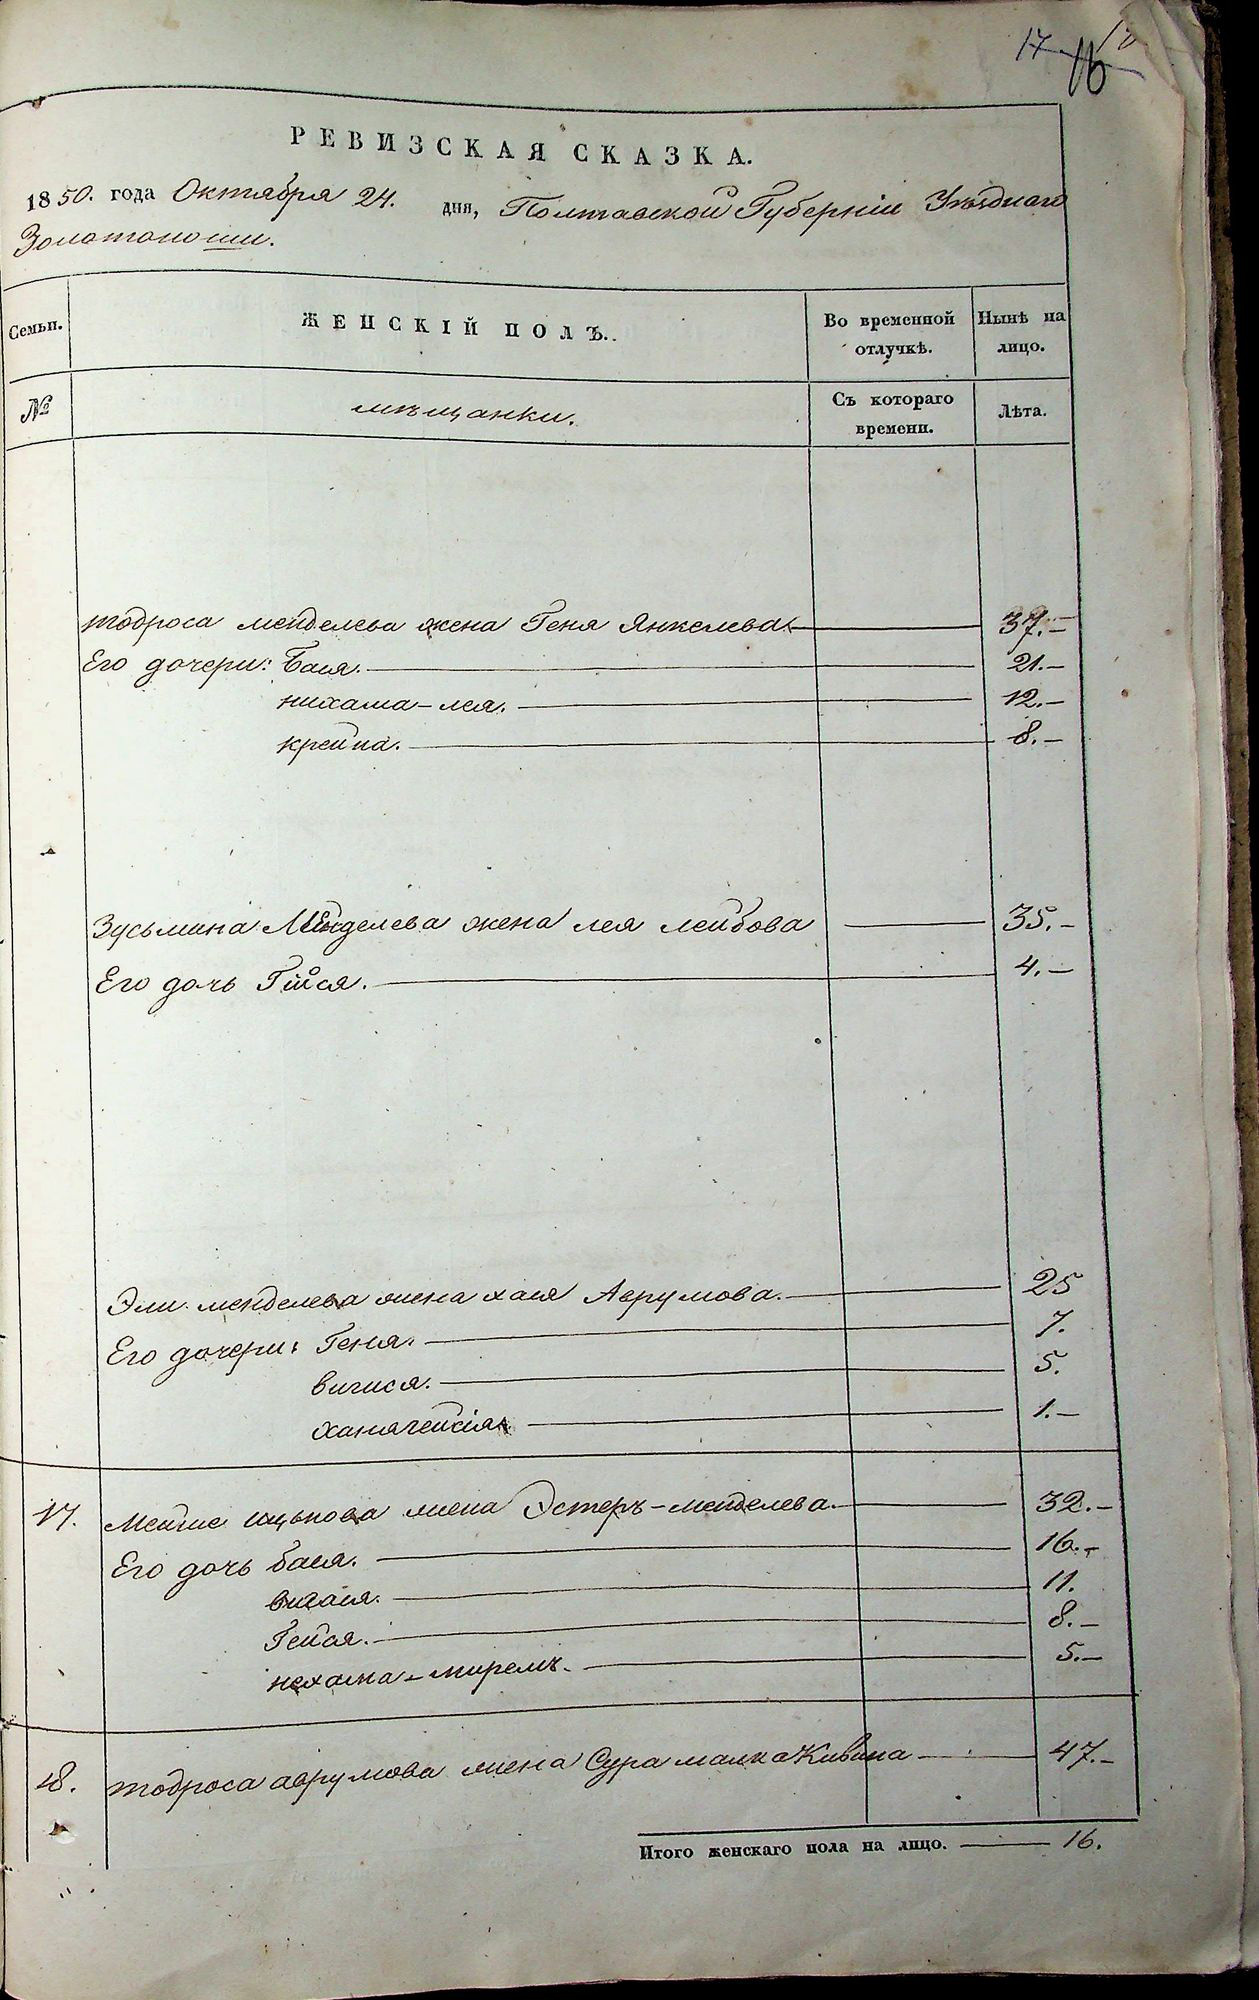 17 16
РЕВИЗСКАЯ СКАЗКА.
1850. года Октября 24. дня, Полтавской Губерніи Уѣзднаго
Золотоноши.
Семьи. ЖЕНСКІЙ ПОЛЪ. Во временной отлучкѣ. Нынѣ на лицо.
№ мѣщанки. Съ котораго времени. Лѣта.
тодроса менделева жена Геня Янкелева 37.—
Его дочери: Бася. 21.—
нихама-лея. 12.—
крейна. 8.—
Зусьмана Менделева жена лея лейбова 35.—
Его дочь Гися. 4.—
Эли менделева жена хая Аврумова. 25
Его дочери: Геня. 7.
вигися. 5.
1.—
17. ицькова жена Эстеръ-менделева. 32.—
Его дочь бася. 16.—
11.
Гейся. 8.—
нехама-мирелъ. 5.—
18. тодроса аврумова жена Сура малка Кивина 47.—
Итого женскаго пола на лицо. 16.